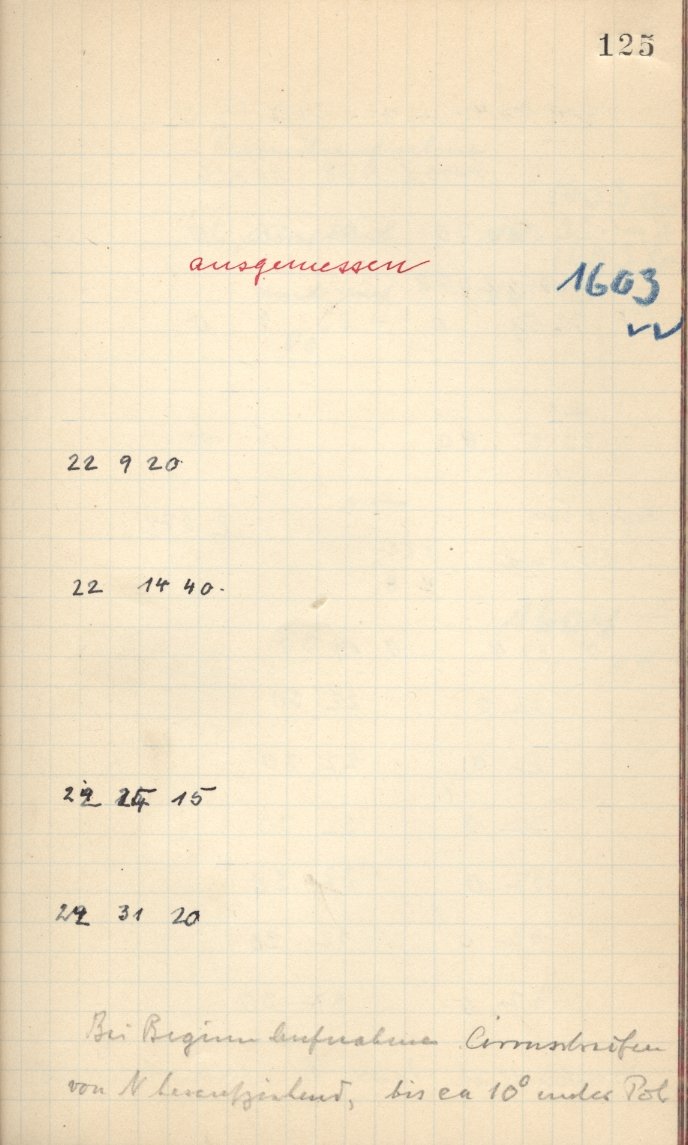 125
ausgemessen
1603
22 9 20
22 14 40.
22 25 15
22 31 20
Bei Beginn Aufnahme Cirrusstreifen
von N heraufziehend, bis ca 10° unter Pol